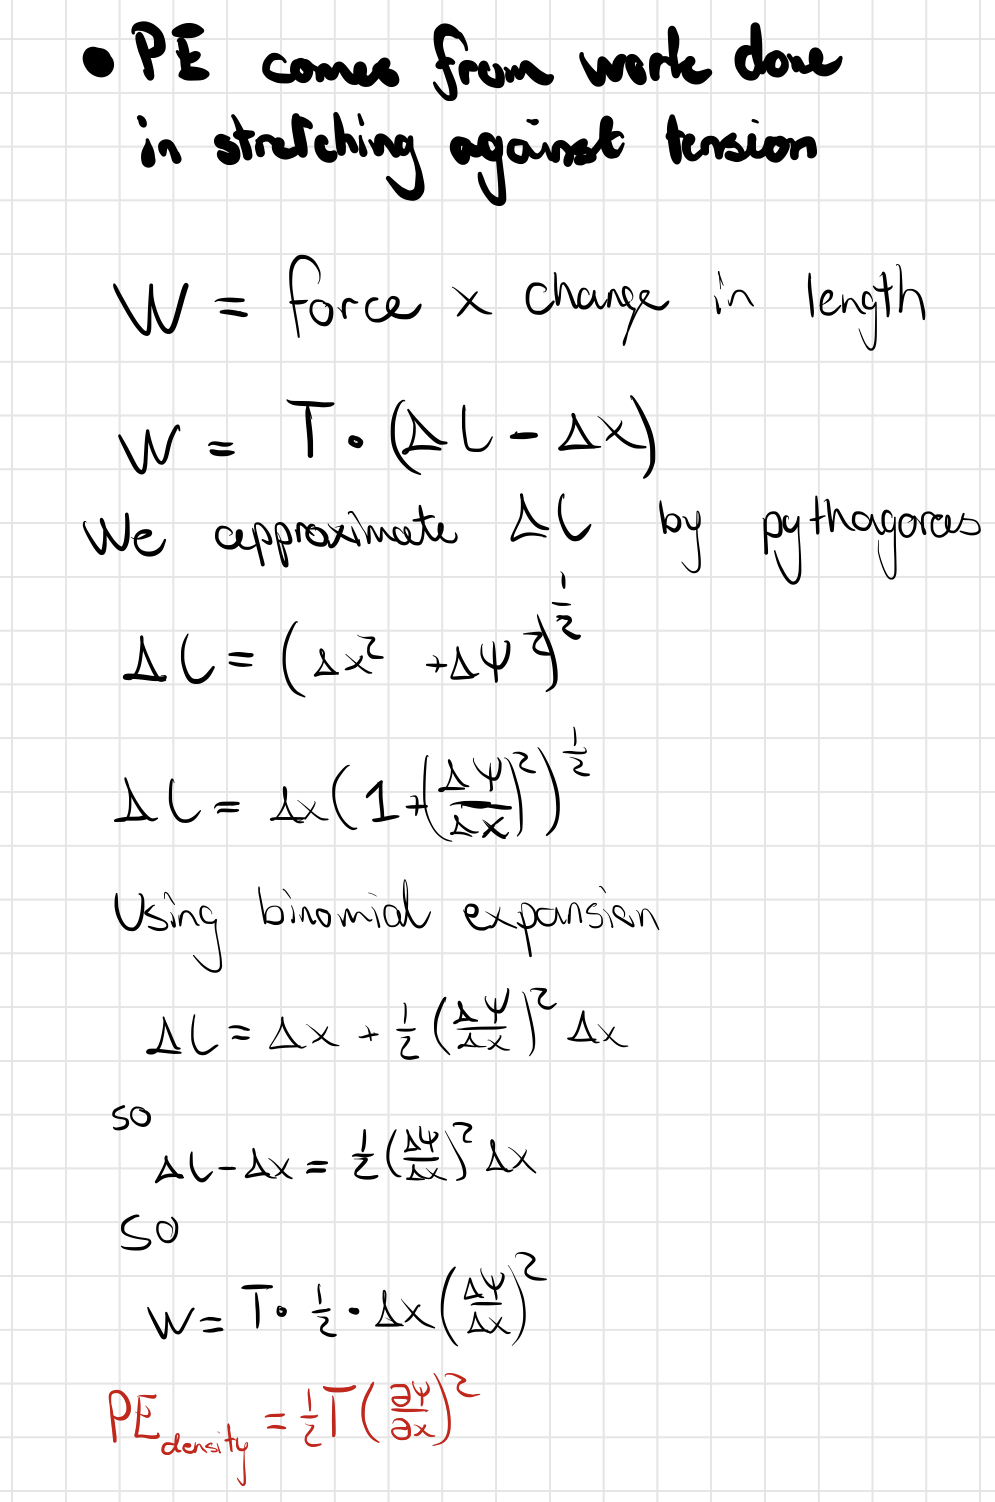 • PE comes from work done
in stretching against tension
W = force × change in length
W = T · (Δl - Δx)
We approximate Δl by pythagoras
Δl = (Δx² + Δψ²)^½
Δl = Δx(1 + (Δψ/Δx)²)^½
Using binomial expansion
Δl = Δx + ½ (Δψ/Δx)² Δx
so
Δl - Δx = ½ (Δψ/Δx)² Δx
so
W = T · ½ · Δx (Δψ/Δx)²
PE_density = ½ T (∂ψ/∂x)²